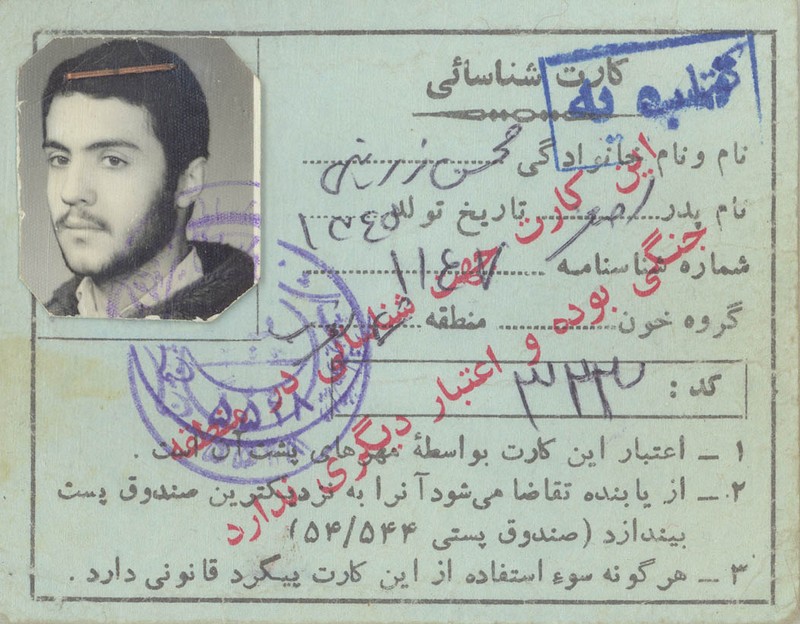 کارت شناسائی
نام و نام خانوادگی محسن
نام پدر تاریخ تولد
شماره شناسنامه ۱۱۴۷
گروه خون منطقه
کد : ۳۲۳
۱ ــ اعتبار این کارت بواسطهٔ مهرهای پشت آن است .
۲ ــ از یابنده تقاضا می‌شود آنرا به نزدیکترین صندوق پست
بیندازد (صندوق پستی ۵۴/۵۴۴)
۳ ــ هرگونه سوء استفاده از این کارت پیگرد قانونی دارد .
این کارت جهت شناسائی در منطقه
جنگی بوده و اعتبار دیگری ندارد